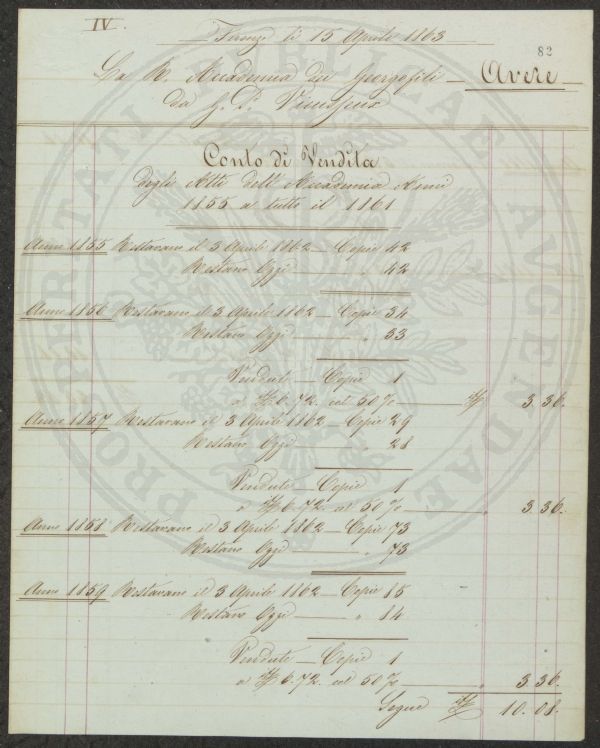 IV.
Firenze li 15 Aprile 1863
82
La R. Accademia dei Georgofili — Avere
da G. P. Vieusseux
Conto di Vendita
degli Atti dell'Accademia Anni
1855 a tutto il 1861
Anno 1855 Restavano il 3 Aprile 1862 — Copie 42
Restano Oggi — „ 42
Anno 1856 Restavano il 3 Aprile 1862 — Copie 34
Restano Oggi — „ 33
Vendute — Copie 1
a 6.72. col 50% — 3 36.
Anno 1857 Restavano il 3 Aprile 1862 — Copie 29
Restano Oggi — „ 28
Vendute — Copie 1
a 6.72. col 50% — „ 3 36.
Anno 1858 Restavano il 3 Aprile 1862 — Copie 73
Restano Oggi — „ 73
Anno 1859 Restavano il 3 Aprile 1862 — Copie 15
Restano Oggi — „ 14
Vendute — Copie 1
a 6.72. col 50% — „ 3 36.
Segue 10. 08.
PROSPERITATI PUBLICAE AUGENDAE